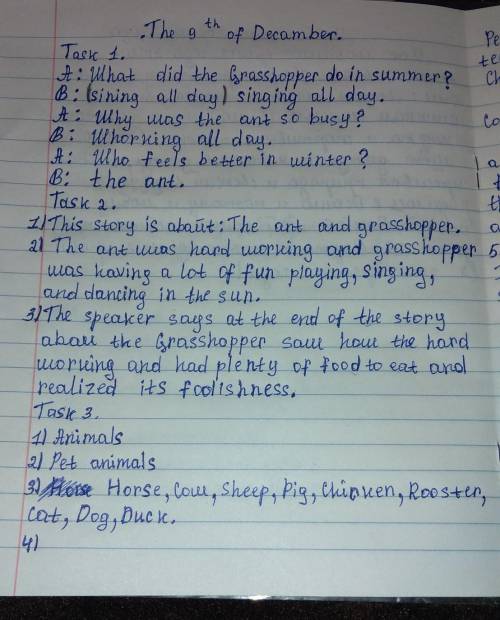 .The 9 th of Decamber.
Task 1.
A: What did the Grasshopper do in summer?
B: (sining all day) singing all day.
A: Why was the ant so busy?
B: Whorking all day.
A: Who feels better in winter?
B: the ant.
Task 2.
1) This story is about: The ant and grasshopper.
2) The ant was hard working and grasshopper
was having a lot of fun playing, singing,
and dancing in the sun.
3) The speaker says at the end of the story
abou the Grasshopper saw how the hard
working and had plenty of food to eat and
realized its foolishness.
Task 3.
1) Animals
2) Pet animals
3) Horse, Cow, Sheep, Pig, Chicken, Rooster,
Cat, Dog, Duck.
4)